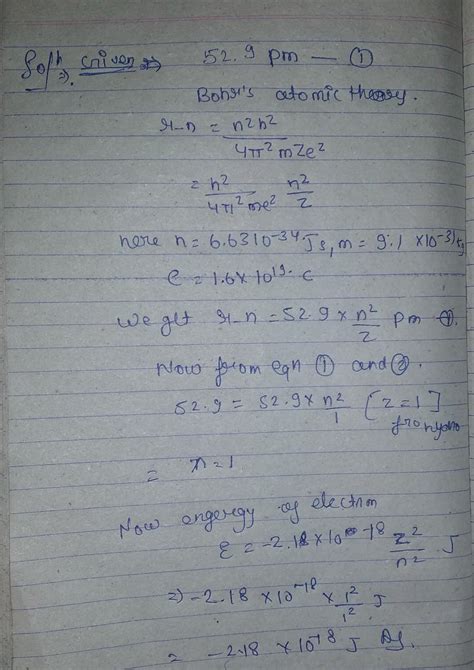 Solⁿ ⇒. Given ⇒ 52.9 pm — ①
Bohr's atomic theory.
r_n = n²h² / 4π²mZe²
= h² / 4π²me² n² / Z
here h = 6.6310⁻³⁴ Js, m = 9.1 × 10⁻³¹ kg
e = 1.6 × 10¹⁹ c
We get r_n = 52.9 × n² / Z pm
Now from eqn ① and ②.
52.9 = 52.9 × n² / 1 [Z = 1]
= n = 1
Now engergy of electron
E = -2.18 × 10⁻¹⁸ Z² / n² J
⇒) -2.18 × 10⁻¹⁸ × 1² / 1² J
= -2.18 × 10⁻¹⁸ J